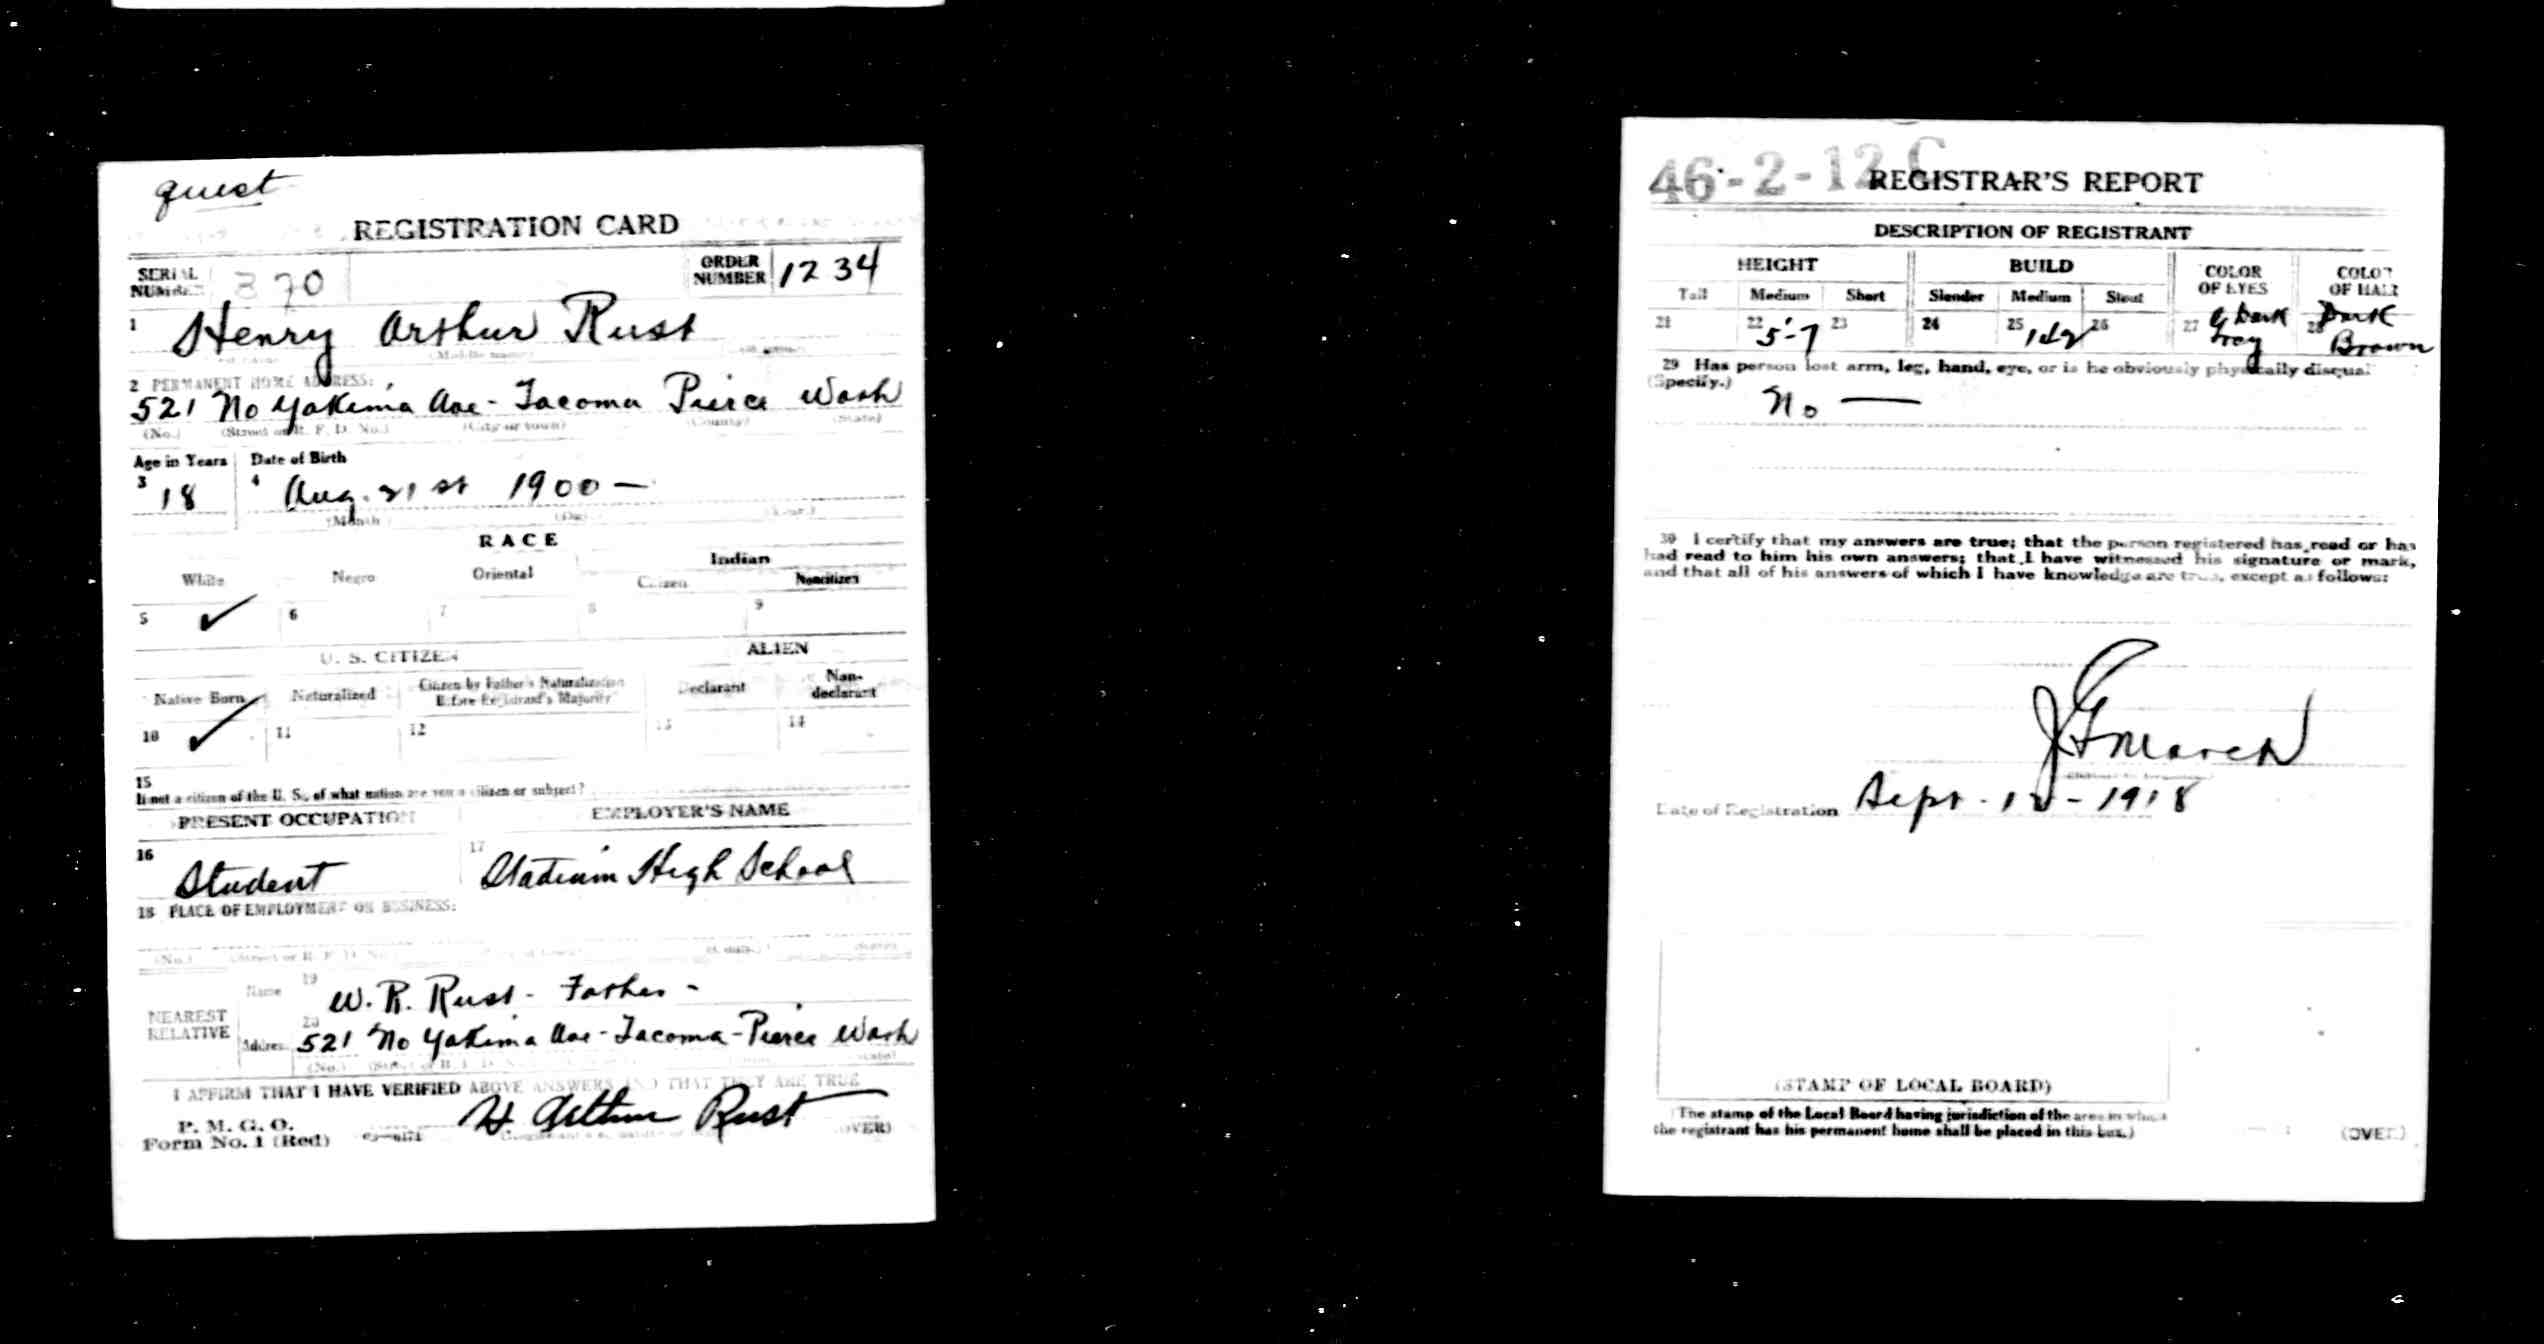 quest
REGISTRATION CARD
SERIAL NUMBER 370 ORDER NUMBER 1234
1 Henry Arthur Rust
(Middle name)
2 PERMANENT HOME ADDRESS:
521 No Yakima Ave - Tacoma Pierce Wash
(No.) (Street or R. F. D. No.) (City or town) (County) (State)
Age in Years Date of Birth
3 18 4 Aug. 21st 1900 —
(Month (Day) (Year)
RACE
White Negro Oriental Indian
Citizen Noncitizen
5 ✓ 6 7 8 9
U. S. CITIZEN ALIEN
Native Born Naturalized Citizen by Father's Naturalization Before Registrant's Majority Declarant Non-declarant
10 ✓ 11 12 13 14
15
If not a citizen of the U. S., of what nation are you a citizen or subject?
PRESENT OCCUPATION EMPLOYER'S NAME
16 Student 17 Stadium High School
18 PLACE OF EMPLOYMENT OR BUSINESS:
(No.) (Street or R. F. D. No.)
NEAREST RELATIVE Name 19 W. R. Rust - Father -
Address 20 521 No Yakima Ave - Tacoma - Pierce Wash
(No.) (State)
I AFFIRM THAT I HAVE VERIFIED ABOVE ANSWERS AND THAT THEY ARE TRUE
P. M. G. O.
Form No. 1 (Red) H. Arthur Rust (OVER)
46-2-12 C
REGISTRAR'S REPORT
DESCRIPTION OF REGISTRANT
HEIGHT BUILD COLOR OF EYES COLOR OF HAIR
Tall Medium Short Slender Medium Stout
21 22 5'-7 23 24 25 26 27 Dark Grey 28 Dark Brown
29 Has person lost arm, leg, hand, eye, or is he obviously physically disqual
(Specify.)
No —
30 I certify that my answers are true; that the person registered has read or has
had read to him his own answers; that I have witnessed his signature or mark,
and that all of his answers of which I have knowledge are true, except as follows:
Date of Registration Sept - 12 - 1918
(STAMP OF LOCAL BOARD)
(The stamp of the Local Board having jurisdiction of the area in which
the registrant has his permanent home shall be placed in this box.)
(OVER)